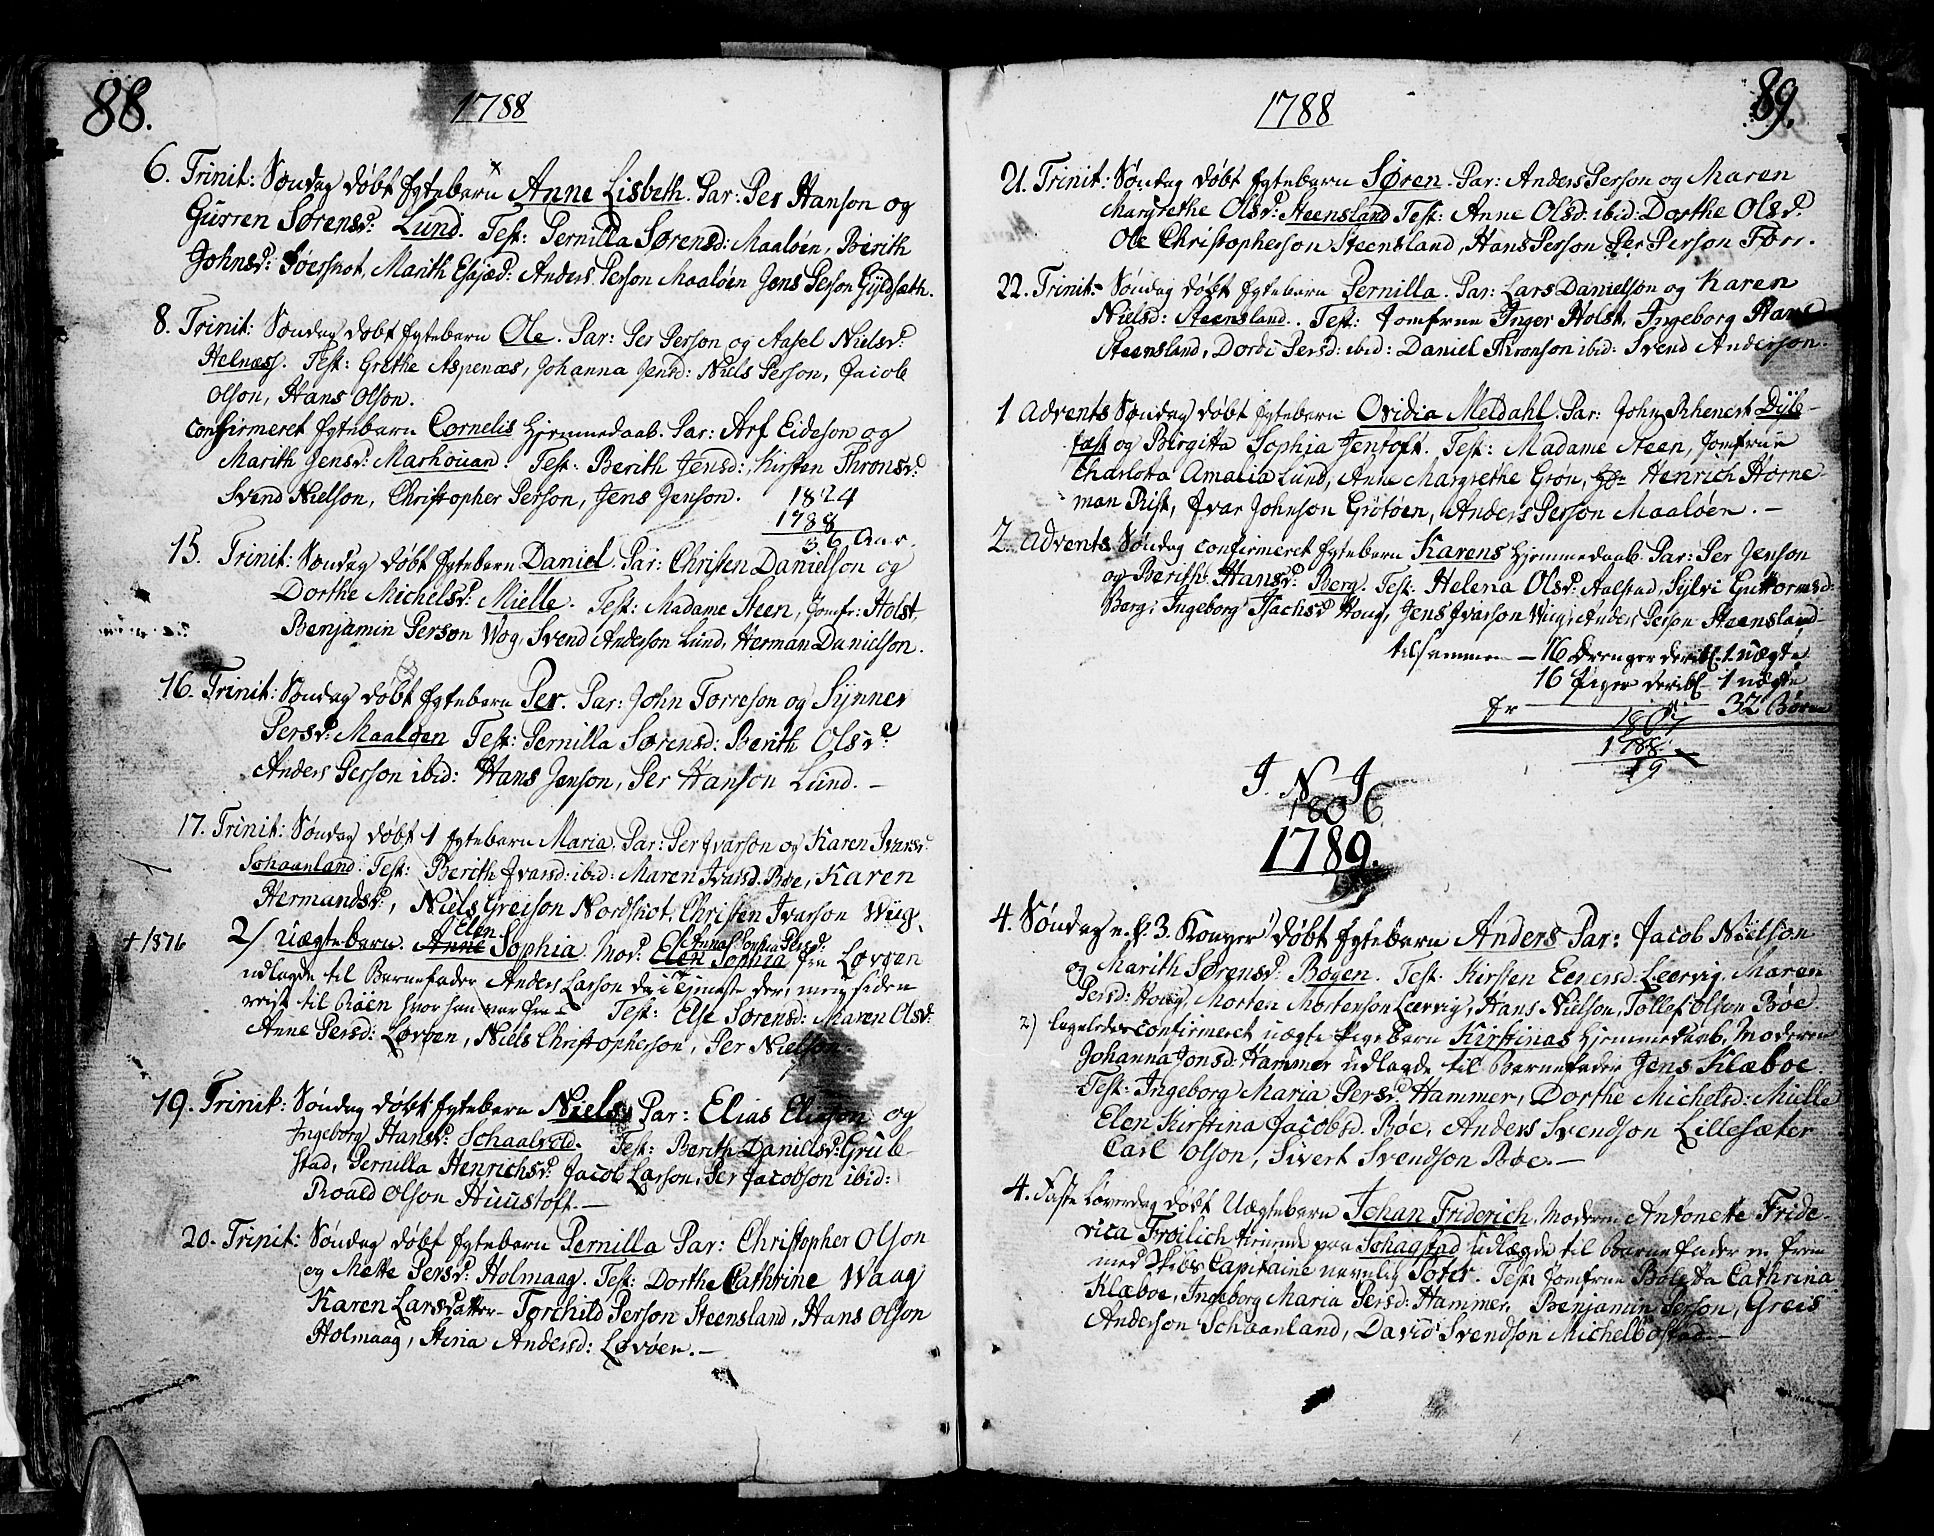 88.
1788
6. Trinit: Søndag døbt Egtebarn Anne Lisbeth. Par: Per Hanson og
Gurren Sørensd: Lund. Test: Pernilla Sørensd: Maaløen, Berith
Johnsd: Marith Anders Person Maaløen Jens Person Gyldsæth.
8. Trinit: Søndag døbt Egtebarn Ole. Par: Per Person og Aasel Nielsd:
Helnæss. Test: Grethe Aspenæs, Johanna Jensd: Niels Person, Jacob
Olson, Hans Olson.
confirmeret Egtebarn Cornelis Hjemmedaab. Par: Arf Eideson og
Marith Jensd: Markouan. Test: Berith Jensd:, Kirsten Thronsd:
Svend Nielson, Christopher Person, Jens Jenson. 1824
1788
36 Aar.
15. Trinit: Søndag døbt Egtebarn Daniel. Par: Christen Danielson og
Dorthe Michelsd: Mielle. Test: Madame Steen, Jomfr: Holst,
Benjamin Person Wog, Svend Anderson Lund, Herman Danielson.
16. Trinit: Søndag døbt Egtebarn Per. Par: John Torreson og Synnev
Persd: Maaloen Test: Pernilla Sørensd: Berith Olsd:
Anders Person ibid: Hans Jenson, Per Hanson Lund. –
17. Trinit: Søndag døbt 1 Egtebarn Maria. Par: Per Ivarson og Karen Ivarsd:
Schaanland. Test: Berith Ivarsd: ibid: Maren Ivarsd. Bøe, Karen
Hermandsd:, Niels Greison Nordskot, Christen Ivarson Wiig.
Elen Anna Sophia Persd:
+ 1876 2/ Uægtebarn. Anne Sophia. Mod: Elen Sophia fra Løvøen
udlagde til Barnefader Anders Larson da i Tjeneste der, men siden
reist til Røen hvor han var fra – Test: Else Sørensd: Maren Olsd:
Anne Persd: Løvøen, Niels Christopherson, Per Nielson.
19. Trinit: Søndag døbt Egtebarn Niels. Par: Elias Eliason og
Ingeborg Hansd: Schaalvold. Test: Berith Danielsd: Grule-
stad, Pernilla Henrichsd: Jacob Larson, Per Jacobson ibid:
Roald Olson Huustoft. –
20. Trinit: Søndag døbt Egtebarn Pernilla Par: Christopher Olson
og Mette Persd: Holmaag. Test: Dorthe Cathrine Waag
Karen Larsdatter Torchild Person Steensland, Hans Olson
Holmaag, Stena Andersd: Løvøen. –
89.
1788
21. Trinit: Søndag døbt Egtebarn Søren. Par: Anders Person og Maren
Margrethe Olsd: Steensland Test: Anne Olsd: ibid: Dorthe Olsd:
Ole Christopherson Steensland, Hans Person Per Person Forr.
22. Trinit: Søndag døbt Egtebarn Pernilla. Par: Lars Danielson og Karen
Nielsd: Steensland. Test: Jomfrue Inger Holst, Ingeborg Hansd
Steensland, Dordi Persd: ibid: Daniel Thronson ibid: Svend Anderson.
1 Advents Søndag døbt Egtebarn Ovidia Meldahl. Par: John Rhenert Dybe-
fæst og Birgitta Sophia Jentoft. Test: Madame Steen, Jomfrue
Charlotta Amalia Lund, Anne Margrethe Grøn, Henrich Horne-
man Rist, Ivar Johnson Grötøen, Anders Person Maaløen. –
2. Advents Søndag confirmeret Egtebarn Karens Hjemmedaab. Par: Per Jenson
og Berith Hansd: Berg. Test: Helena Olsd: Aalstad, Sylvi Guttormsd:
Berg, Ingeborg Houg, Jens Ivarson Wiig, Anders Person Steensland
tilsammen – 16 Drenger deribl. 1 uægte
16 Piger deribl. 1 uægte
Er 32 Børn
1807
1788
19
I. N. J.
1806
1789.
4. Søndag e. h. 3. Konger døbt Egtebarn Anders Par: Jacob Nielson
og Marith Sørensd: Bogen. Test: Kirsten Leervig, Maren
Persd: Houg, Morten Mortenson Leervig, Hans Nielson, Tollef Olson Bøe.
2) confirmeret uægte Pigebarn Kirstinas Hjemmedaab. Moderen
Johanna Jonsd: Hammer udlagde til Barnefader Jens Klæboe.
Test: Ingeborg Maria Persd: Hammer, Dorthe Michelsd: Mielle
Elen Kirstina Jacobsd. Bøe, Anders Svendson Lillesæter
Carl Olson, Sivert Svendson Bøe. –
4. Faste Løverdag døbt Uægtebarn Johan Friderich. Moderen Antonete Fride-
rica Froilich tienende paa Schagstad udlægde til Barnefader en
med Skibs Capitaine navnlig Soter. Test: Jomfrue Boletta Cathrina
Klæboe, Ingeborg Maria Persd: Hammer, Benjamin Person, Greis
Anderson Schaanland, David Svendson Michelbostad –